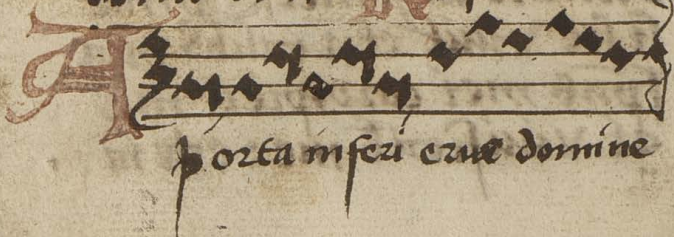 A
porta inferi erue domine